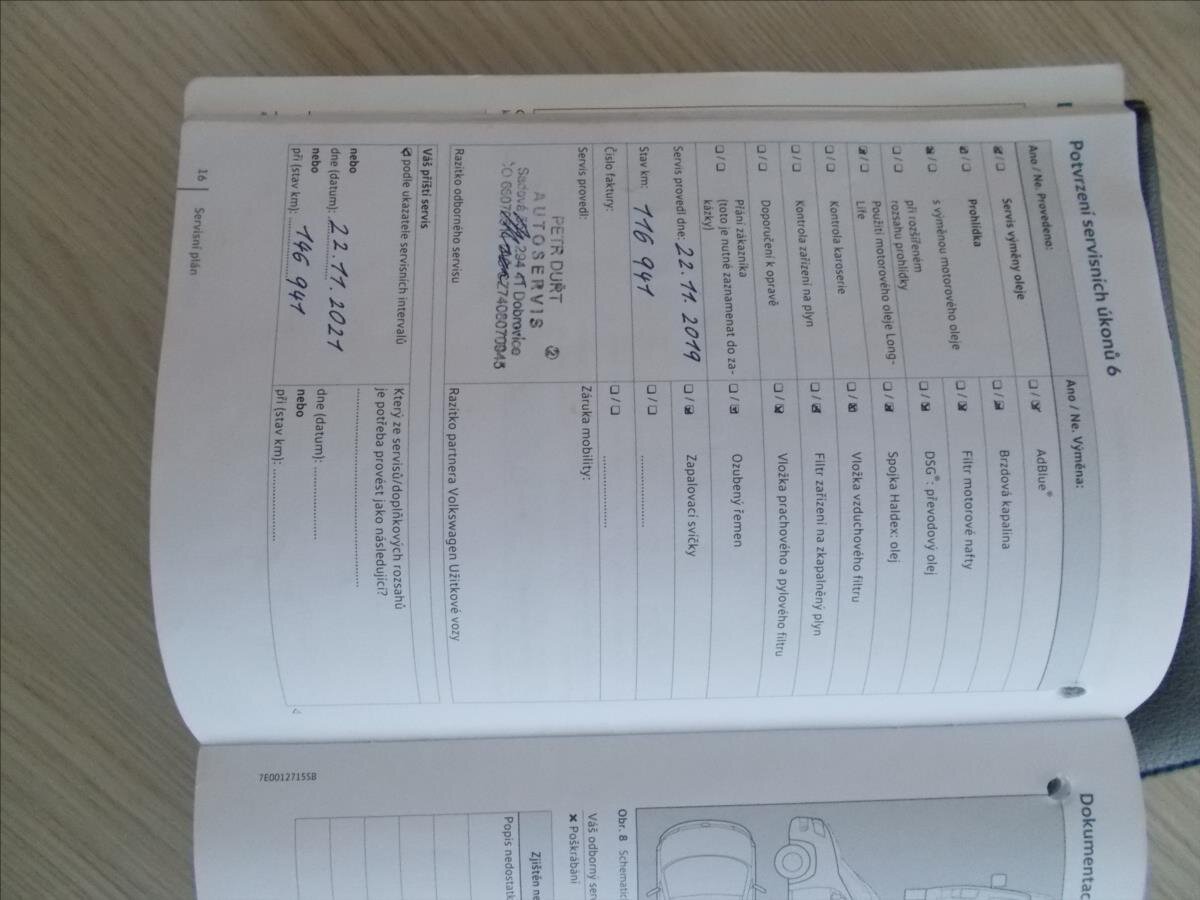 Potvrzení servisních úkonů 6
Ano / Ne. Provedeno:
☑ / ☐ Servis výměny oleje
Prohlídka
☑ / ☐ s výměnou motorového oleje
☑ / ☐ při rozšířeném
rozsahu prohlídky
☐ / ☐ Použití motorového oleje Long-
Life
☑ / ☐
☐ / ☐ Kontrola karoserie
☐ / ☐ Kontrola zařízení na plyn
☐ / ☐ Doporučení k opravě
☐ / ☐ Přání zákazníka
(toto je nutné zaznamenat do za-
kázky)
Servis provedl dne: 22.11.2019
Stav km: 116 941
Číslo faktury:
Servis provedl:
PETR DUŘT
AUTOSERVIS
②
Sadová 294 41 Dobrovice
Razítko odborného servisu
Ano / Ne. Výměna:
☐ / ☑ AdBlue®
☐ / ☑ Brzdová kapalina
☐ / ☑ Filtr motorové nafty
☐ / ☑ DSG®: převodový olej
☐ / ☑ Spojka Haldex: olej
☐ / ☑ Vložka vzduchového filtru
☐ / ☑ Filtr zařízení na zkapalněný plyn
☐ / ☑ Vložka prachového a pylového filtru
☐ / ☑ Ozubený řemen
☐ / ☑ Zapalovací svíčky
☐ / ☐ ....................
☐ / ☐ ....................
Záruka mobility:
Razítko partnera Volkswagen Užitkové vozy
Váš příští servis
podle ukazatele servisních intervalů
nebo
dne (datum): 22.11.2021
nebo
při (stav km): 146 941
Který ze servisů/doplňkových rozsahů
je potřeba provést jako následující?
............................................
dne (datum): ................
nebo
při (stav km): ................
16 Servisní plán
Dokumentac
Obr. 8 Schematic
Váš odborný ser
✖ Poškrábání
Zjištěn ne
Popis nedostatk
7E0012715SB